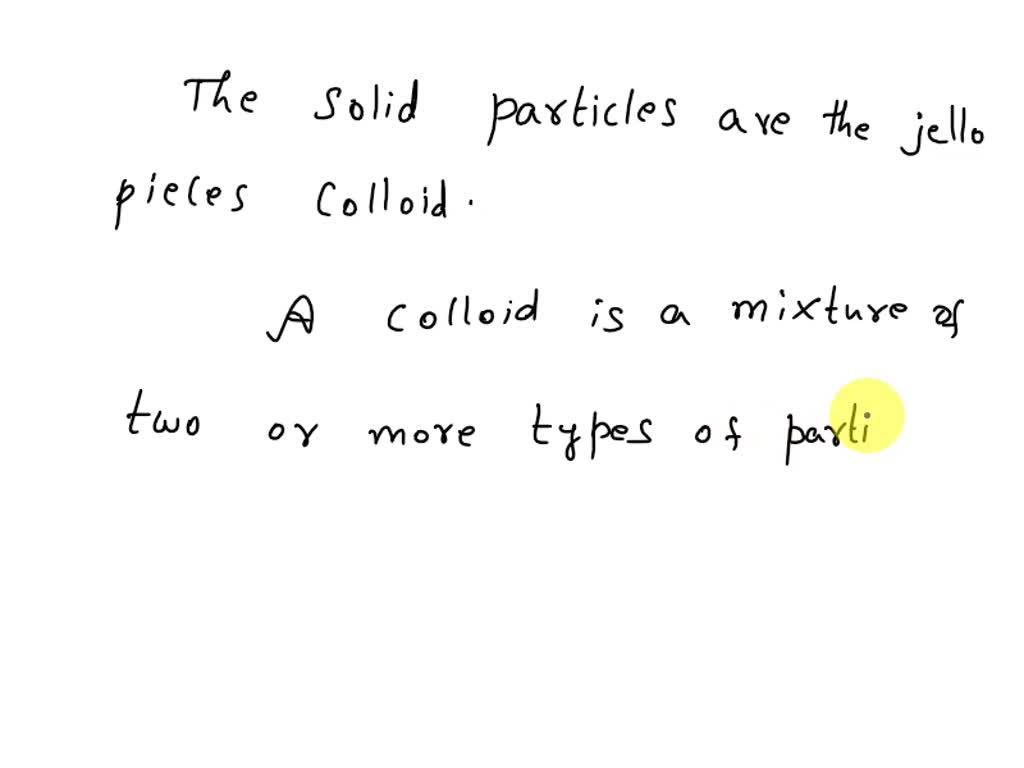 The solid particles are the jello
pieces colloid.
A colloid is a mixture of
two or more types of parti